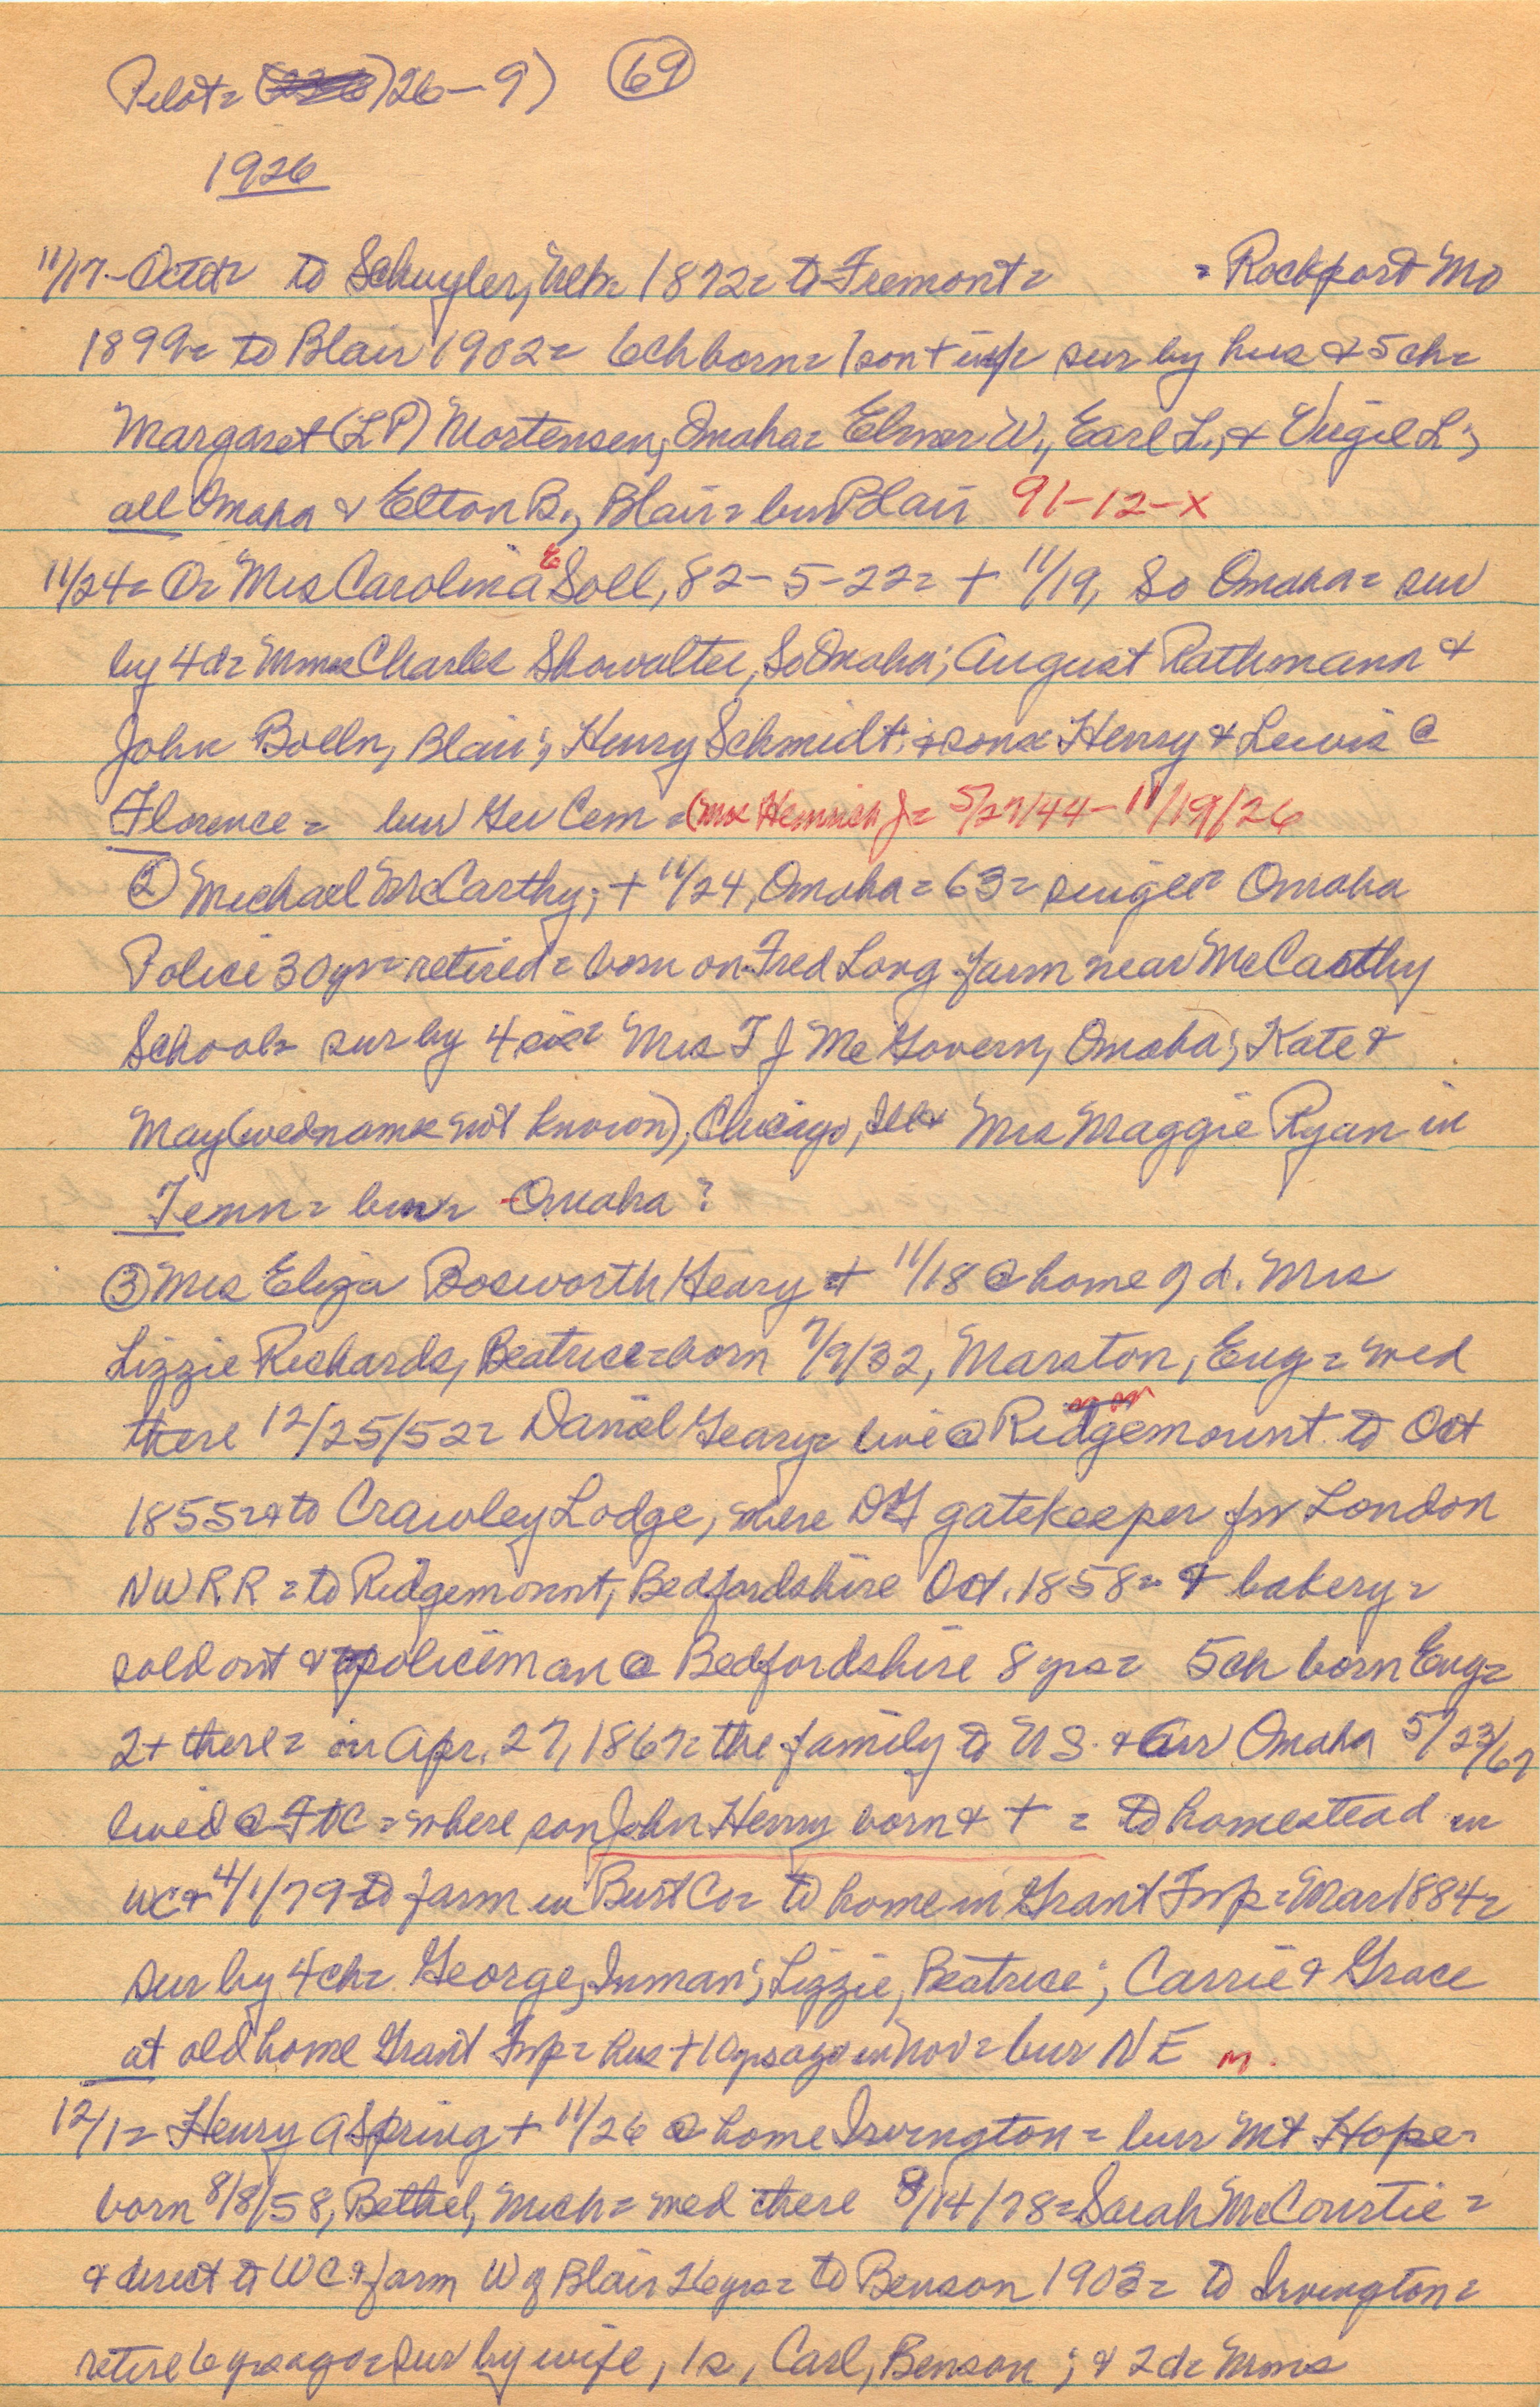 Pilot= 26-9) 69
1926
11/17- to Schuyler, Neb= 1872= to Fremont= = Rockport Mo
1899= to Blair 1902= 6ch born= 1 son + inf= sur by hus & 5 ch=
Margaret (L P) Mortensen, Omaha= Elmer W., Earl L., & Virgil L;
all Omaha & Elton B., Blair= bur Blair 91-12-X
11/24= O= Mrs Carolina E Soll, 82-5-22= + 11/19, So Omaha= sur
by 4d= Mmes Charles Showalter, So Omaha; August Rathmann &
John Bolln, Blair; Henry Schmidt; & sons Henry & Lewis @
Florence = bur Ger Cem = (Mrs Heinrich J= 5/27/44- 11/19/26
② Michael McCarthy; + 11/24, Omaha= 63= single= Omaha
Police 30yrs= retired= born on Fred Long farm near McCarthy
School= sur by 4 sis= Mrs T J McGovern, Omaha; Kate &
May (wed names not known), Chicago, Ill & Mrs Maggie Ryan in
Tenn= bur= Omaha?
③ Mrs Eliza Bosworth Geary + 11/18 @ home of d. Mrs
Lizzie Richards, Beatrice= born 7/9/32, Marston, Eng= wed
there 12/25/52= Daniel Geary= live @ Ridgemount to Oct
1855= & to Crawley Lodge, where DG gatekeeper for London
NW R.R = to Ridgemount, Bedfordshire Oct. 1858= & bakery=
sold out & policeman @ Bedfordshire 8 yrs= 5ch born Eng=
2+ there= on Apr. 27, 1867= the family to US. & arr Omaha 5/23/67
lived @ FtC = where son John Henry born & + = to homestead in
WC & 4/1/79 to farm in Burt Co= to home in Grant Twp= Mar 1884=
sur by 4ch= George, Inman; Lizzie, Beatrice; Carrie & Grace
at old home Grant Twp= hus + 10 yrs ago in Nov= bur NE m.
12/1= Henry A Spring + 11/26 @ home Irvington= bur Mt Hope=
born 8/8/58, Bethel, Mich= wed there 8/14/78= Sarah McCourtie=
& direct to WC & farm W of Blair 26yrs= to Benson 1902= to Irvington=
retire 6 yrs ago= sur by wife, 1s, Carl, Benson; & 2d= Mmes